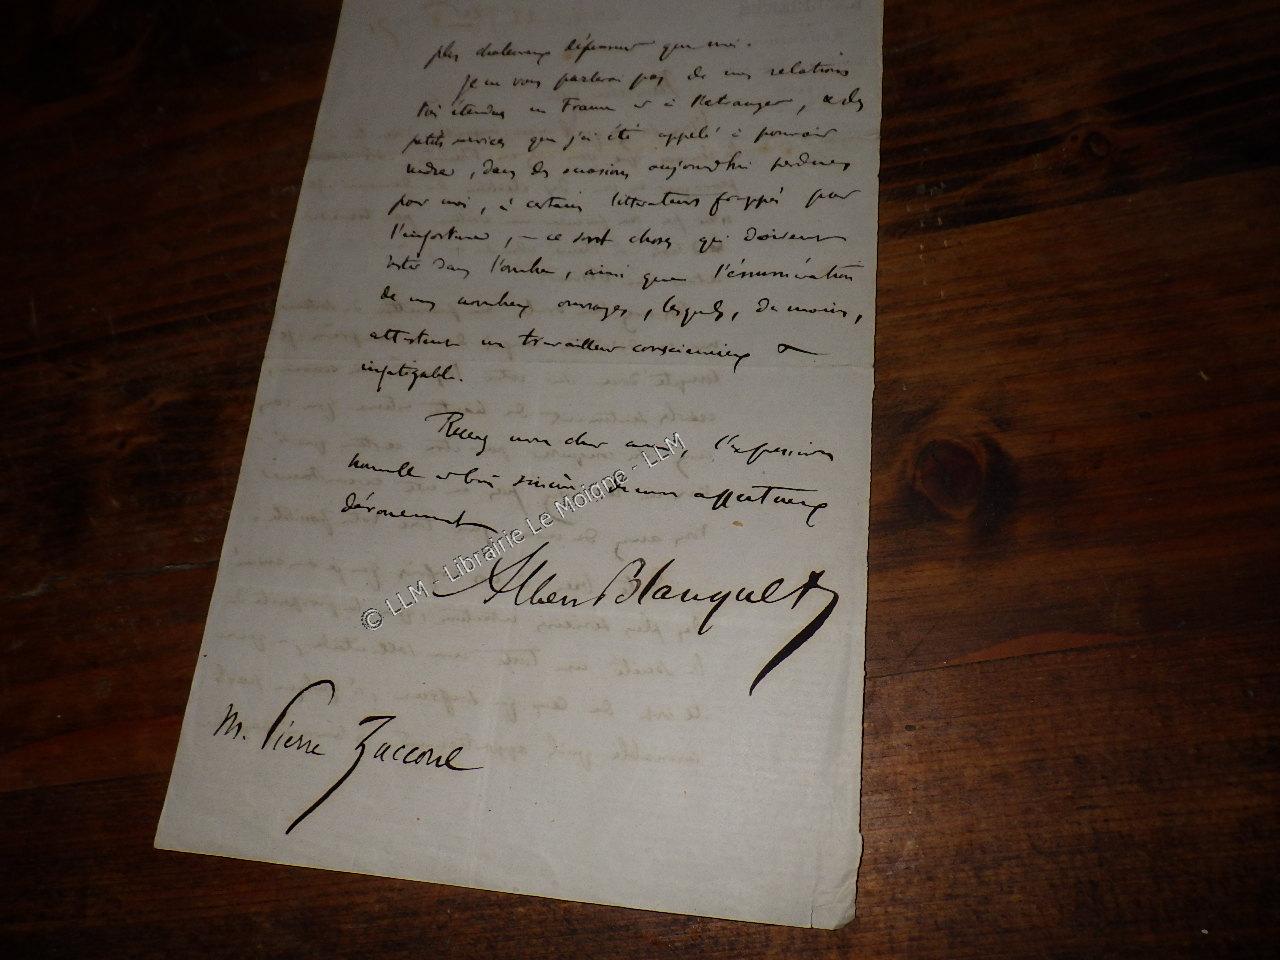 plus chaleureux défenseur que moi.
Je ne vous parlerai pas de mes relations
très étendues en France et à l'étranger, & des
petits services que j'ai été appelé à pouvoir
rendre, dans des occasions aujourd'hui perdues
pour moi, à certains littérateurs frappés par
l'infortune, — ce sont choses qui doivent
rester dans l'ombre, ainsi que l'énumération
de mes nombreux ouvrages, lesquels, du moins,
attestent un travailleur consciencieux et
infatigable.
Recevez mon cher ami, l'expression
humble et bien sincère de mon affectueux
dévouement
Albert Blanquet
M. Pierre Zaccone
© LLM - Librairie Le Moigne - LLM